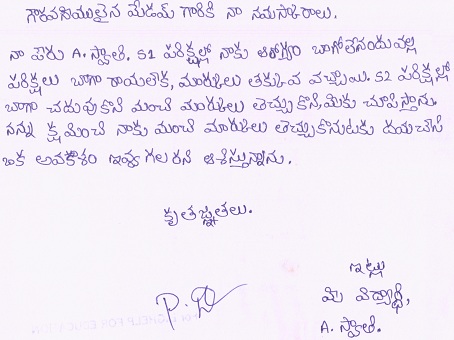 గౌరవనీయులైన మేడమ్ గారికి నా నమస్కారాలు.
నా పేరు A. స్వాతి. S1 పరీక్షల్లో నాకు ఆరోగ్యం బాగోలేనందువల్ల
పరీక్షలు బాగా రాయలేక, మార్కులు తక్కువ వచ్చాయి. S2 పరీక్షల్లో
బాగా చదువుకొని మంచి మార్కులు తెచ్చుకొని, మీకు చూపిస్తాను.
నన్ను క్షమించి నాకు మంచి మార్కులు తెచ్చుకొనుటకు దయచేసి
ఒక అవకాశం ఇవ్వగలరని ఆశిస్తున్నాను.
కృతజ్ఞతలు.
ఇట్లు
మీ విద్యార్థి,
A. స్వాతి.